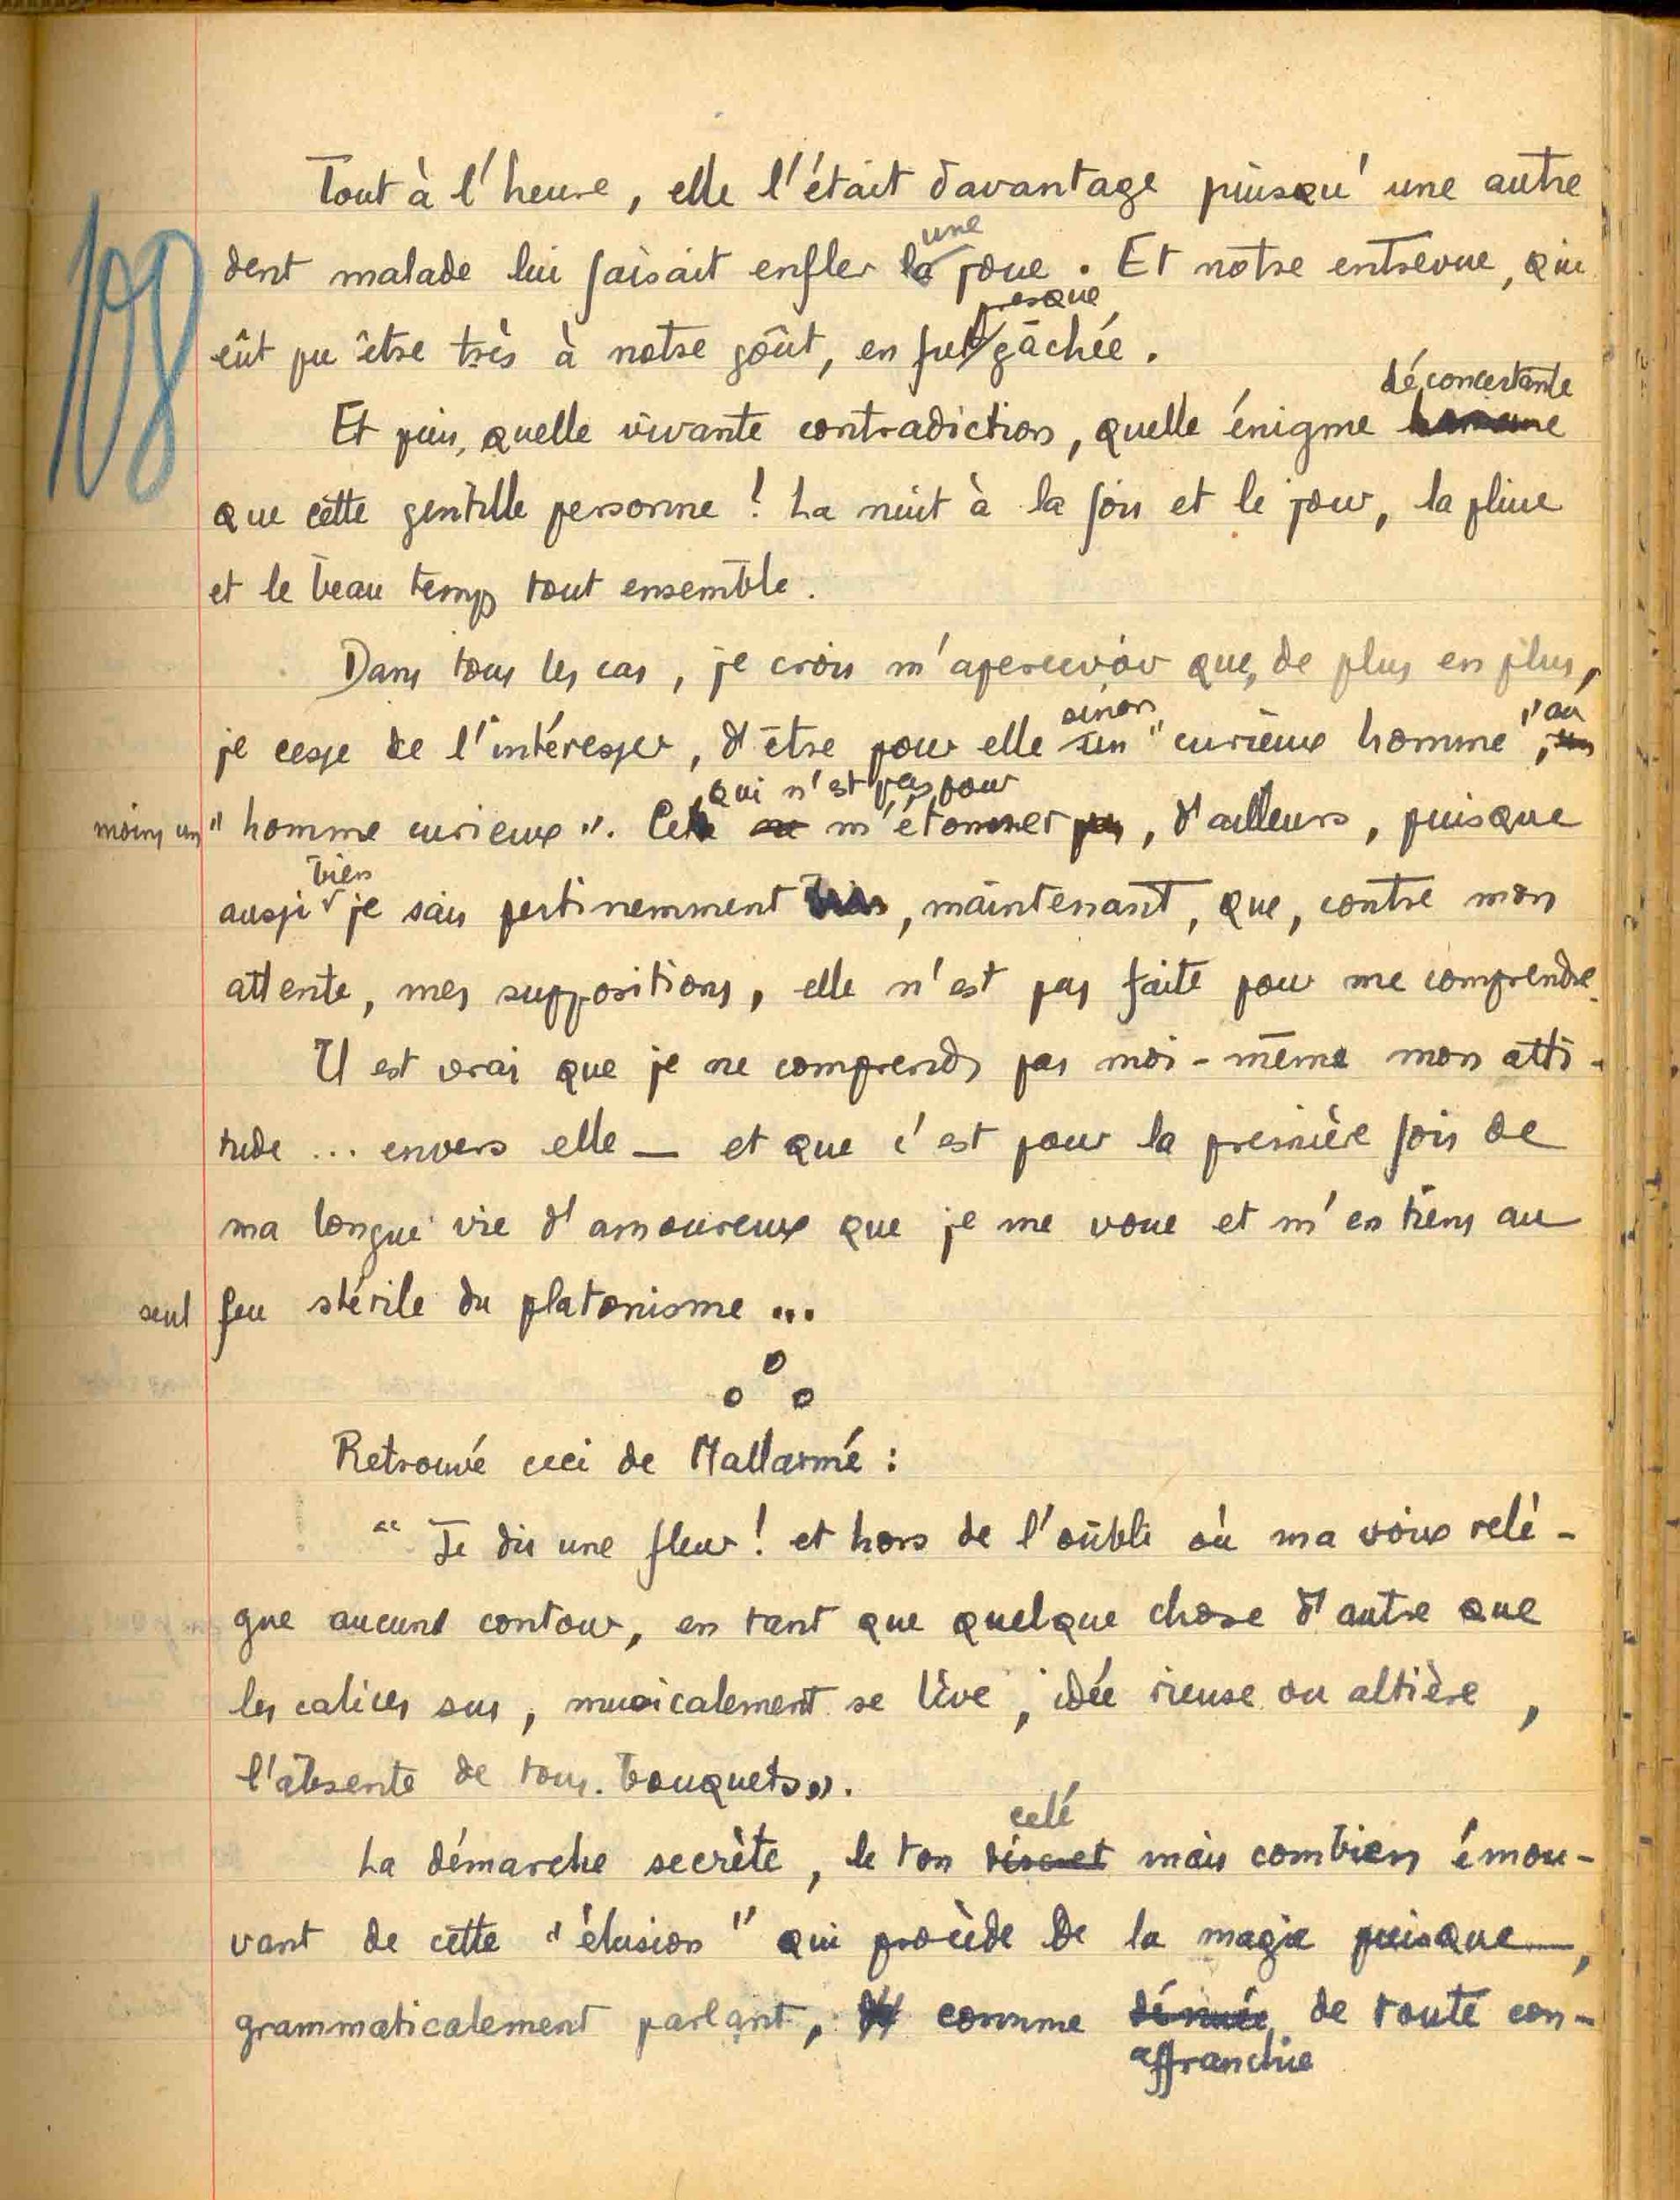 108
Tout à l'heure, elle l'était davantage puisqu'une autre
une
dent malade lui faisait enfler la joue. Et notre entrevue, qui
presque
eût pu être très à notre goût, en fut gâchée.
déconcertante
Et puis, quelle vivante contradiction, quelle énigme
que cette gentille personne ! La nuit à la fois et le jour, la pluie
et le beau temps tout ensemble.
Dans tous les cas, je crois m'apercevoir que, de plus en plus,
sinon au
je cesse de l'intéresser, d'être pour elle un "curieux homme", un
qui n'est pas pour
moins un "homme curieux". Cela ne m'étonner pas, d'ailleurs, puisque
bien
aussi je sais pertinemment bien, maintenant, que, contre mon
attente, mes suppositions, elle n'est pas faite pour me comprendre.
Il est vrai que je ne comprends pas moi-même mon atti-
tude ... envers elle — et que c'est pour la première fois de
ma longue vie d'amoureux que je me voue et m'en tiens au
seul feu stérile du platonisme ...
o
o o
Retrouvé ceci de Mallarmé :
"Je dis une fleur ! et hors de l'oubli où ma voix relè-
gue aucun contour, en tant que quelque chose d'autre que
les calices sus, musicalement se lève, idée rieuse ou altière,
l'absente de tous bouquets".
celé
La démarche secrète, le ton discret mais combien émou-
vant de cette "élusion" qui procède de la magie puisque,
grammaticalement parlant, comme dénuée de toute con-
affranchie